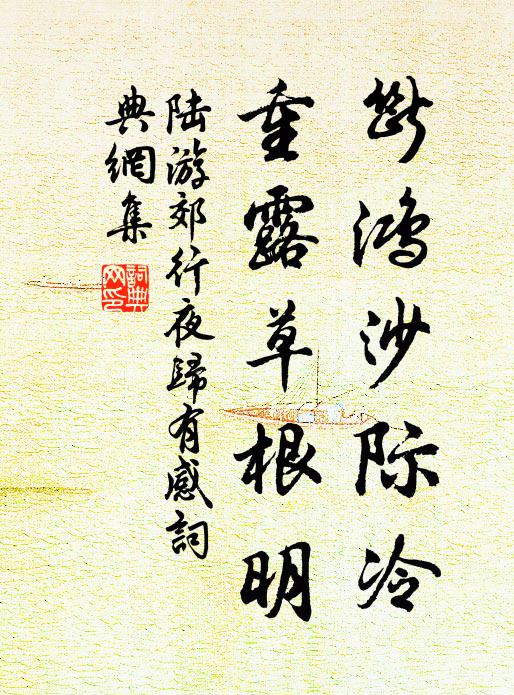 断鸿沙际冷
重露草根明
陆游郊行夜歸有感詞
典網集
詞典
网印